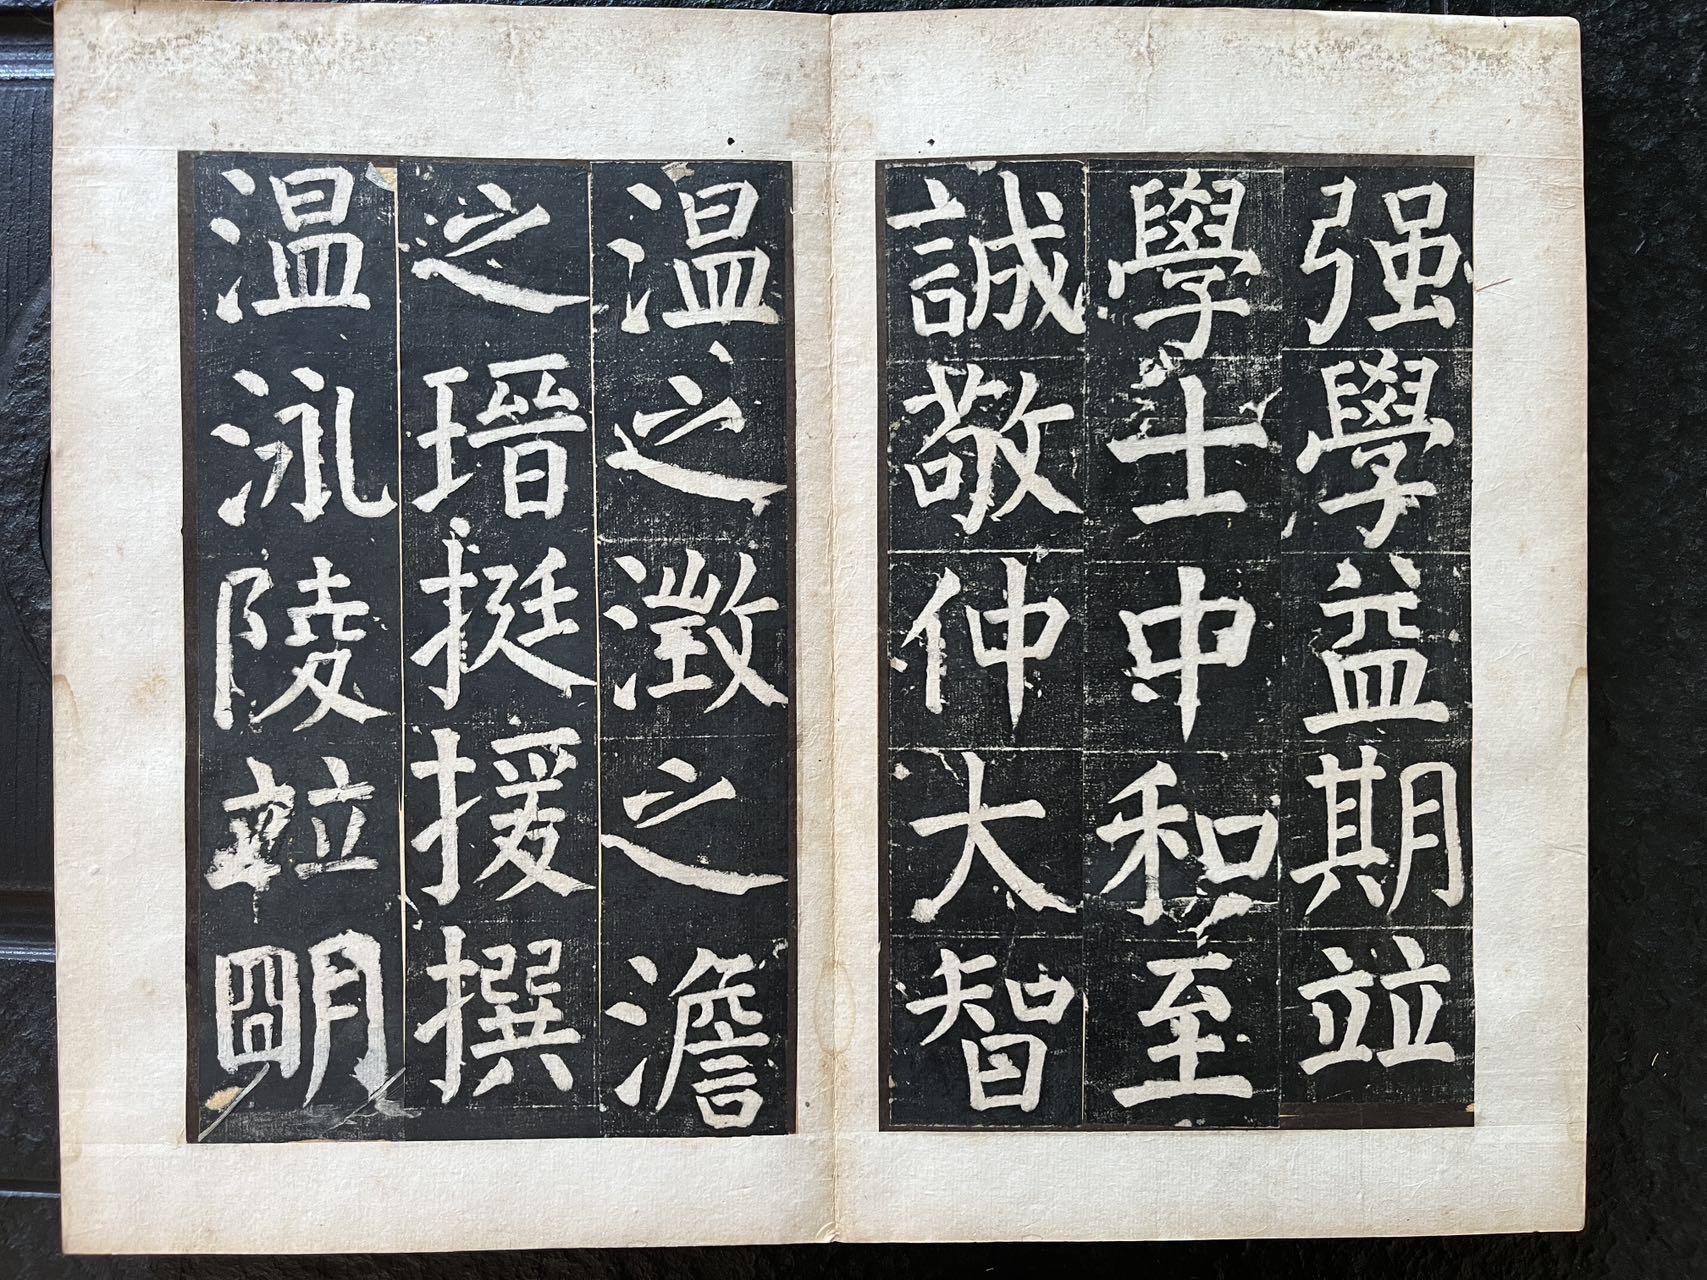 强學益期竝
學士中和至
誠敬仲大智
温之澂之澹
之瑨挺援撰
温泳陵竝朙